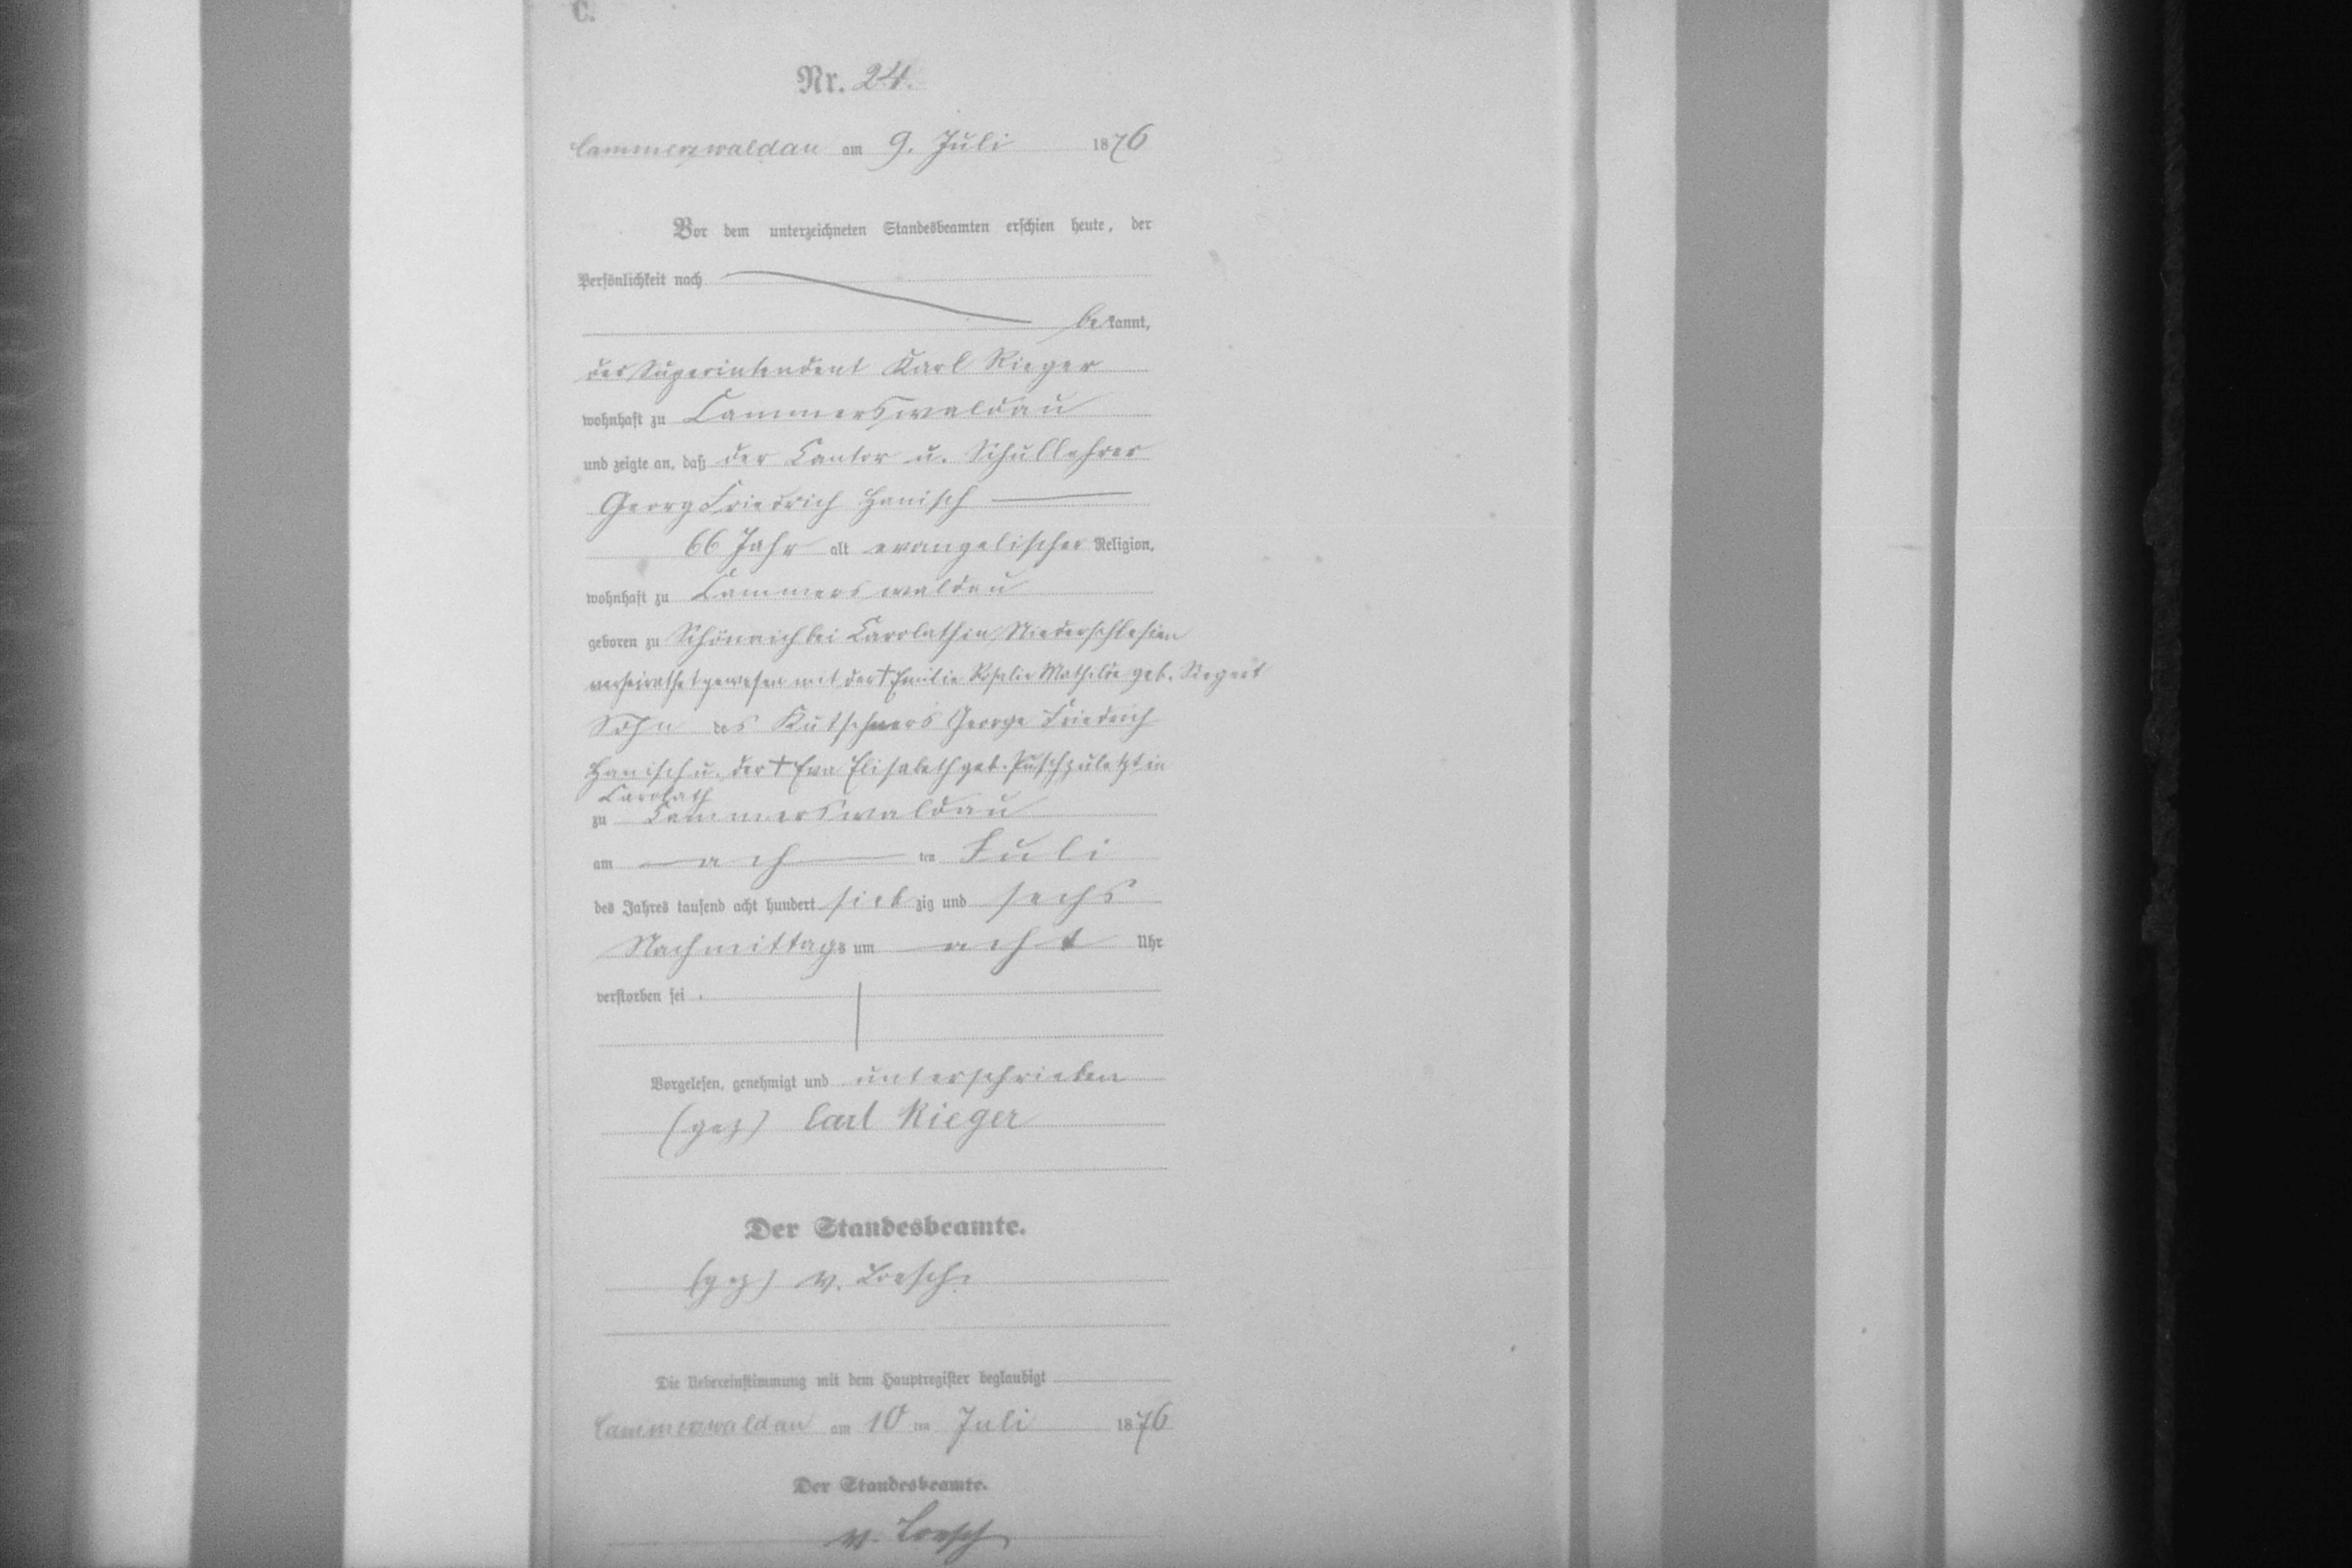 C.
Nr. 24.
Cammerswaldau am 9. Juli 1876
Vor dem unterzeichneten Standesbeamten erschien heute, der
Persönlichkeit nach
bekannt,
der Superintendent Karl Rieger
wohnhaft zu Cammerswaldau
und zeigte an, daß der Cantor u. Schullehrer
Georg Friedrich Hanisch
66 Jahr alt evangelischer Religion,
wohnhaft zu Cammerswaldau
geboren zu Schönaich bei Carolath in Niederschlesien
verheirathet gewesen mit der † Emilie Rosalie Mathilde geb. Siegert
Sohn des Kutschners George Friedrich
Hanisch u. der † Eva Elisabeth geb. Pusch zuletzt in
Carolath
zu Cammerswaldau
am ach ten Juli
des Jahres tausend acht hundert siebzig und sechs
Nachmittags um acht Uhr
verstorben sei.
Vorgelesen, genehmigt und unterschrieben
(gez) Carl Rieger
Der Standesbeamte.
(gez) v. Loesch.
Die Uebereinstimmung mit dem Hauptregister beglaubigt
Cammerswaldau am 10 ten Juli 1876
Der Standesbeamte.
v. Loesch